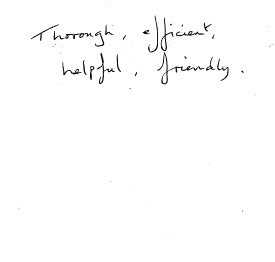 Thorough, efficient,
helpful, friendly.